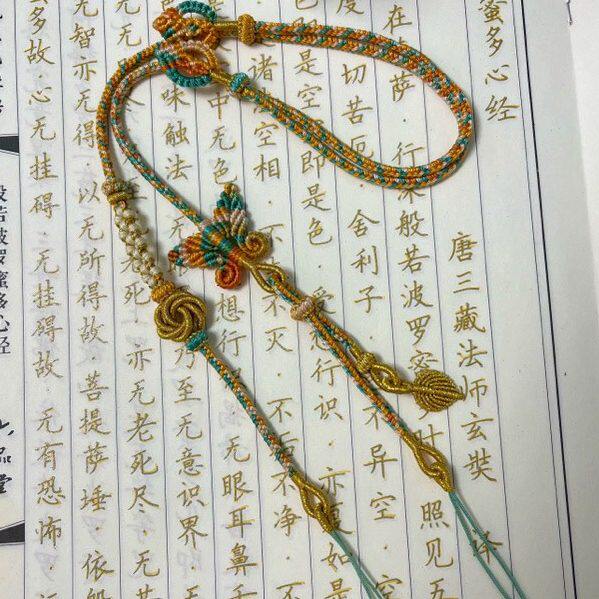 蜜多心经
唐三藏法师玄奘 译
在 萨·行深般若波罗 时 照见五
度 切苦厄 舍利子 不异空·空
是空 即是色·受想行识·亦 如是
诸 空相·不 不灭·不 不净·
中无色 想行 无眼耳鼻
味触法 乃至无意识界
老死·亦无老死尽·无
无智亦无得·以无所得故·菩提萨埵·依般
多故·心无挂碍·无挂碍故·无有恐怖·
般若波罗蜜多心经